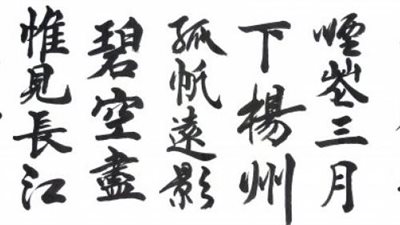 煙華三月
下楊州
孤帆遠影
碧空盡
惟見長江